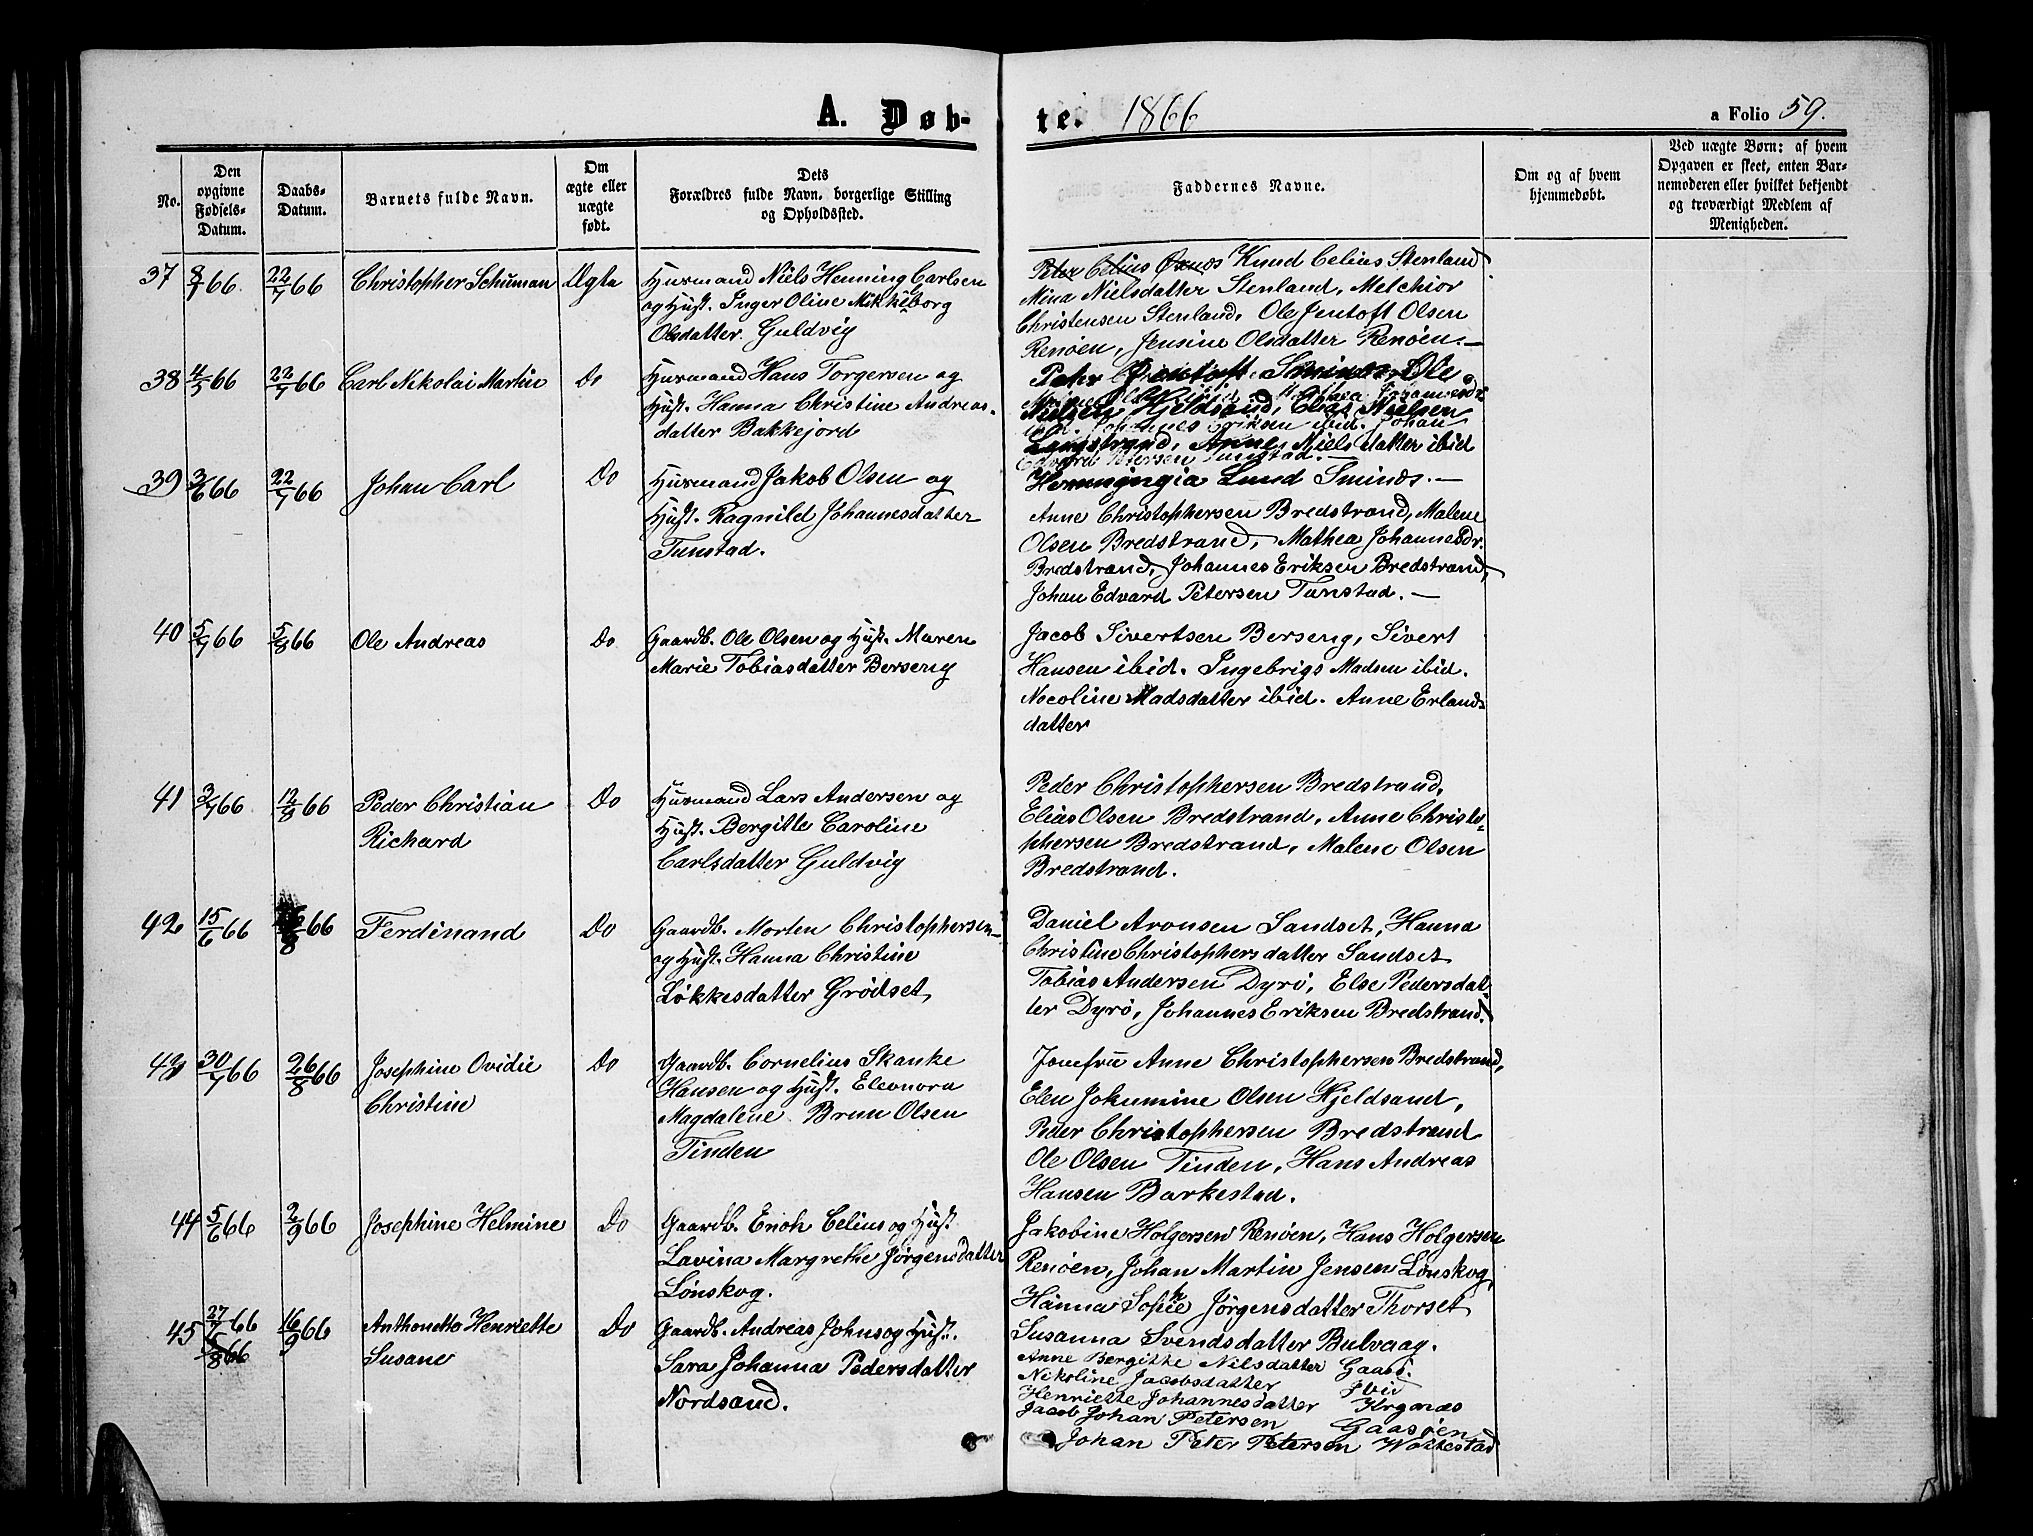 A. Døb-
te. 1866
a Folio 59.
No.
Den
opgivne
Fødsels-
Datum.
Daabs-
Datum.
Barnets fulde Navn.
Om
ægte eller
uægte
født.
Dets
Forældres fulde Navn, borgerlige Stilling
og Opholdssted.
Faddernes Navne.
Om og af hvem
hjemmedøbt.
Ved uægte Børn: af hvem
Opgaven er skeet, enten Bar-
nemoderen eller hvilket bekjendt
og troværdigt Medlem af
Menigheden.
37 8/7 66. 22/7 66 Christopher Schuman Ægte
Huusmand Niels Henning Carlsen
og Hust. Inger Oline Mikkeborg
Olsdatter. Guldvig
Peter Celius Knud Celius Stenland
Mina Nielsdatter Stenland, Melchior
Christensen Stenland, Ole Jentoft Olsen
Renøen, Jensine Olsdatter Renøen.—
38 4/5 66 22/7 66 Carl Nikolai Martin Do
Huusmand Hans Torgersen og
Hust. Hanna Christine Andreas-
datter Bakkejord
Peter Jentoft Ole
Nielsen Hjeldsand, Elias Nielsen
Langstrand, Anne Nielsdatter ibid
Edvard Petersen Tunstad.
Lund
39 3/6 66 22/7 66 Johan Carl Do
Huusmand Jakob Olsen og
Hust. Ragnild Johannesdatter
Tunstad.
Anne Christophersen Bredstrand, Malene
Olsen Bredstrand, Mathea Johannesdr.
Bredstrand, Johannes Eriksen Bredstrand,
Johan Edvard Petersen Tunstad.—
40 5/7 66 5/8 66 Ole Andreas Do
Gaardb. Ole Olsen og Hust. Maren
Marie Tobiasdatter Berseng
Jacob Sivertsen Berseng, Sivert
Hansen ibid. Ingebrigs Madsen ibid.
Nicoline Madsdatter ibid. Anne Erlands-
datter
41 3/7 66 12/8 66 Peder Christian
Richard Do
Huusmand Lars Andersen og
Hust. Bergitte Caroline
Carlsdatter Guldvig
Peder Christophersen Bredstrand,
Elias Olsen Bredstrand, Anne Christo-
phersen Bredstrand, Malene Olsen
Bredstrand.
42 15/6 66 /8 66 Ferdinand Do
Gaardb. Morten Christophersen
og Hust. Hanna Christine
Løkkesdatter Grødset
Daniel Aronsen Sandset, Hanna
Christine Christophersdatter Sandset
Tobias Andersen Dyrø, Else Pedersdat-
ter Dyrø, Johannes Eriksen Bredstrand.
43 30/7 66 26/8 66 Josephine Ovidie
Christine Do
Gaardb. Cornelius Skanke
Hansen og Hust. Eleonora
Magdalene Brun Olsen
Tinden
Jomfru Anne Christophersen Bredstrand,
Elen Jokumine Olsen Hjeldsand,
Peder Christophersen Bredstrand
Ole Olsen Tinden, Hans Andreas
Hansen Barkestad.
44 5/6 66 2/9 66 Josephine Helmine Do
Gaardb. Enoh Celius og Hust.
Lavina Margrethe Jørgensdatter
Lønskog.
Jakobine Holgersen Renøen, Hans Holgersen
Renøen, Johan Martin Jensen Lønskog,
Hanna Sophie Jørgensdatter Thorset
Susanna Svendsdatter Bulvaag.
45 27/7 66 /8 66 16/9 66 Anthonette Henriette
Susane Do
Gaardb. Andreas Johns og Hust.
Sara Johanna Pedersdatter
Nordsand.
Anne Bergitte Nilsdatter Gaasø.
Nikoline Jacobsdatter Ibid
Henriette Johannesdatter
Jacob Johan Petersen Gaasøen
Johan Peter Petersen